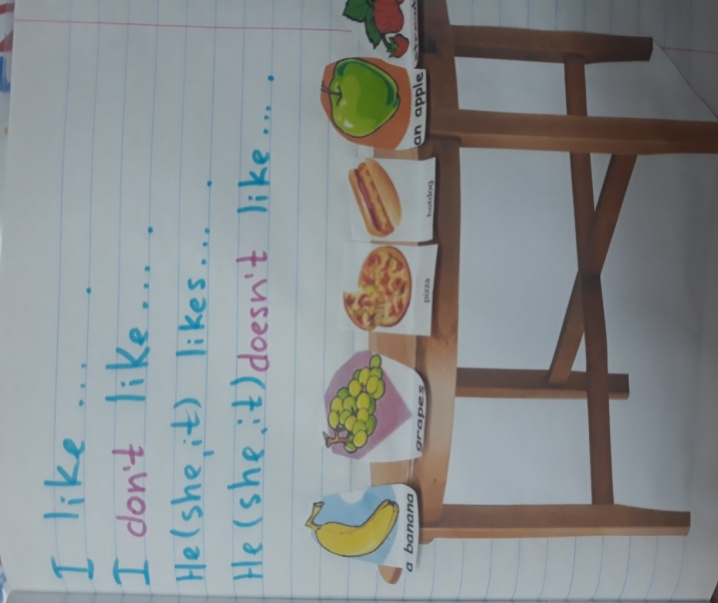 I like ... .
I don't like ... .
He (she, it) likes ... .
He (she, it) doesn't like ... .
a banana
grapes
pizza
hotdog
an apple